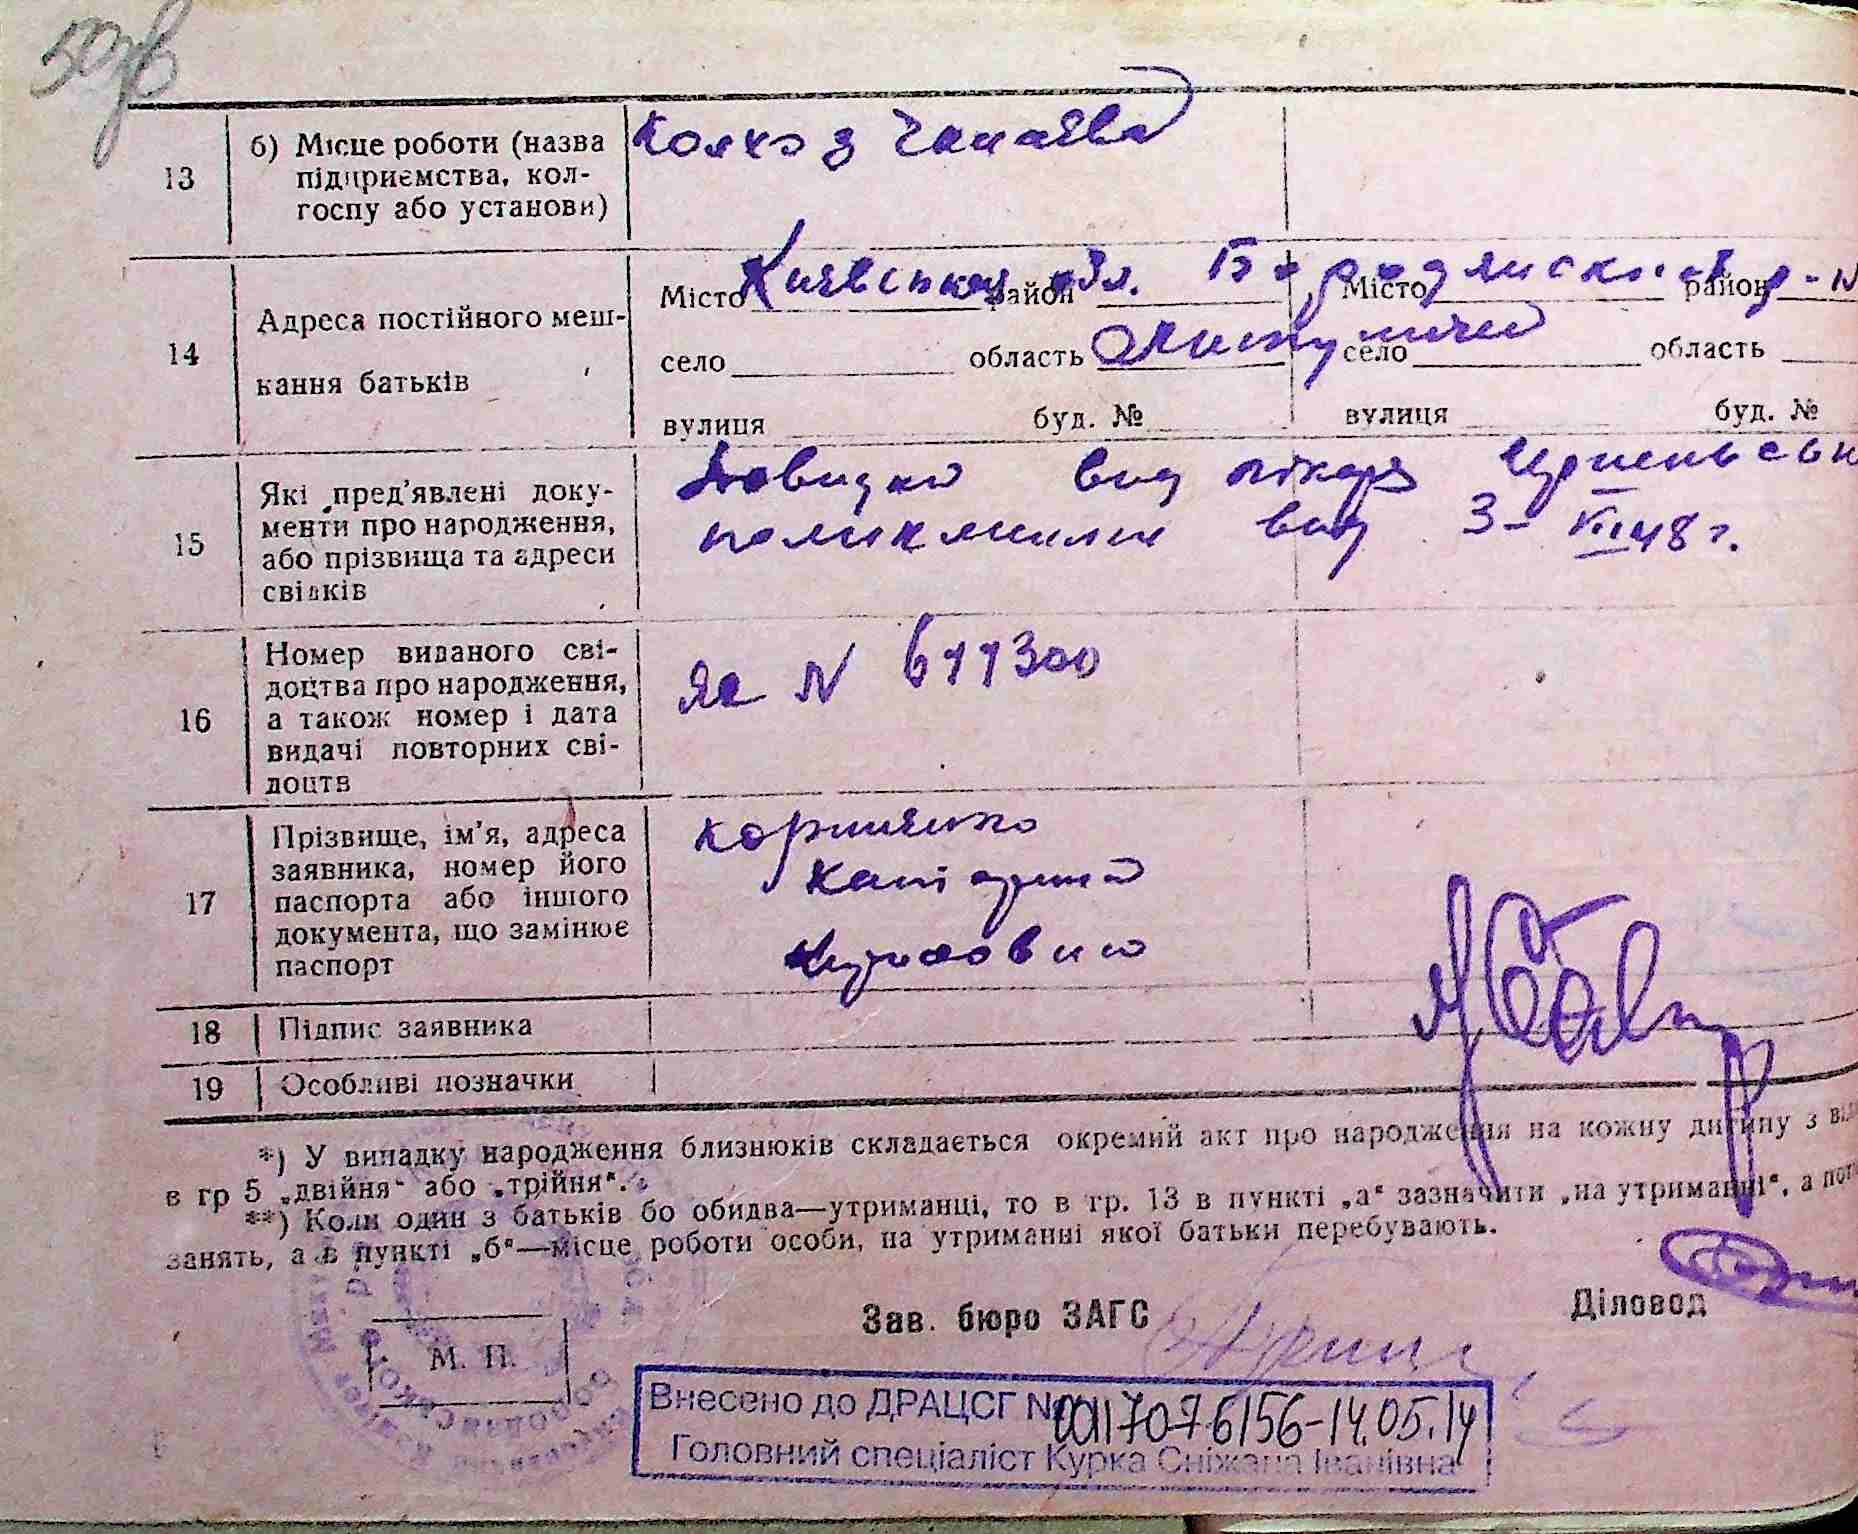 503в
13 б) Місце роботи (назва підприємства, колгоспу або установи) Колхоз Чапаєва
14 Адреса постійного мешкання батьків
Київська обл. Бородянський р-н
Місто район Місто район
село область село область
вулиця буд. № вулиця буд. №
15 Які пред'явлені документи про народження, або прізвища та адреси свідків
Довидка вид лікаря
вид 3- VIII 48 г.
16 Номер виданого свідоцтва про народження, а також номер і дата видачі повторних свідоцтв
N 611300
17 Прізвище, ім'я, адреса заявника, номер його паспорта або іншого документа, що замінює паспорт
Корниенко
18 Підпис заявника
19 Особливі позначки
*) У випадку народження близнюків складається окремий акт про народження на кожну дитину з
в гр 5 „двійня“ або „трійня“.
**) Коли один з батьків бо обидва—утриманці, то в гр. 13 в пункті „а“ зазначити „на утриманні“, а
занять, а в пункті „б“—місце роботи особи, на утриманні якої батьки перебувають.
Зав. бюро ЗАГС Діловод
М. П.
Внесено до ДРАЦСГ № 00117076156-14.05.14
Головний спеціаліст Курка Сніжана Іванівна